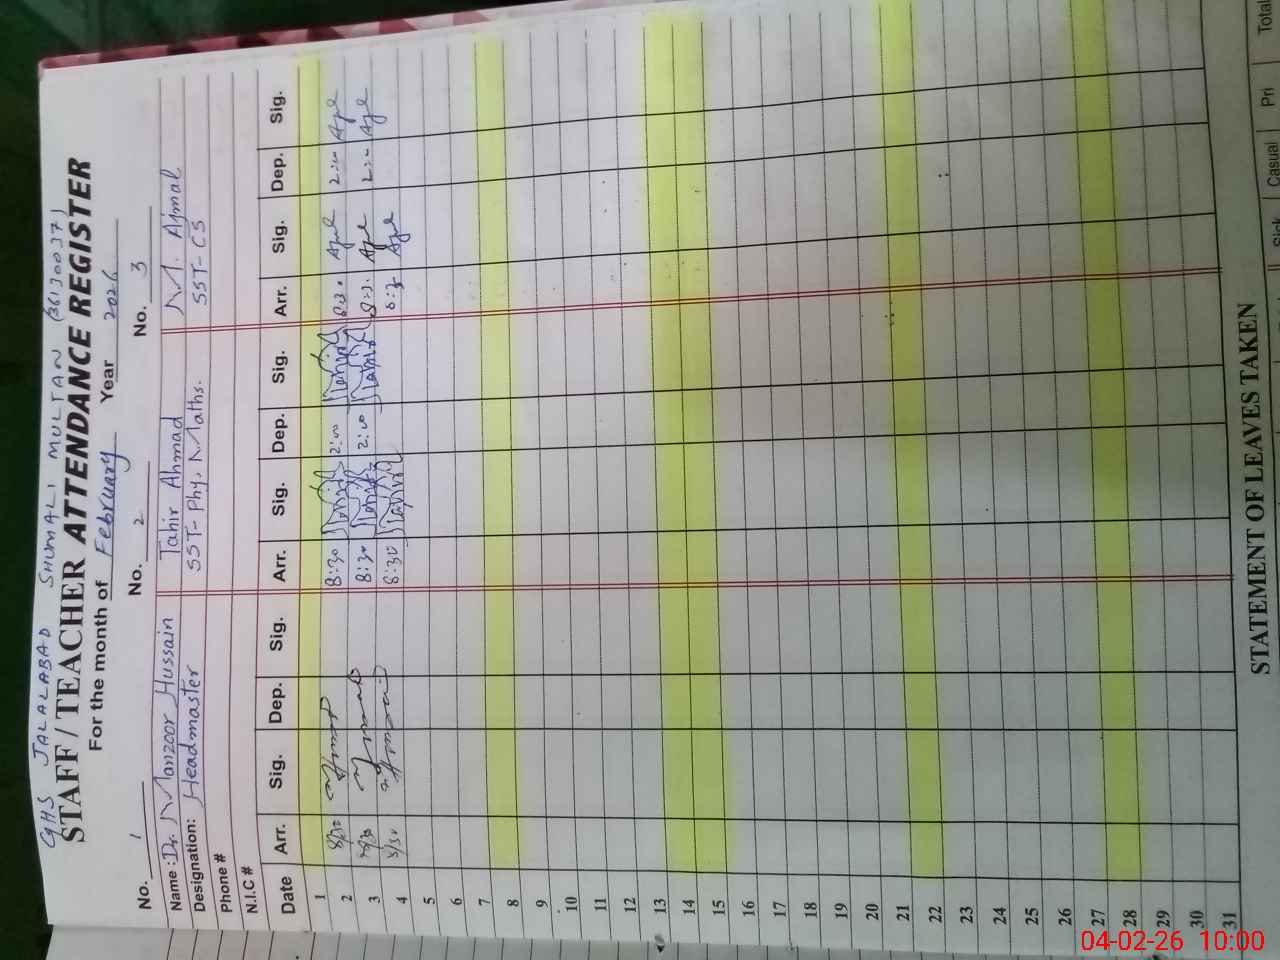 GHS JALALABAD SHUMALI MULTAN (36130037)
STAFF / TEACHER ATTENDANCE REGISTER
For the month of February Year 2026
No. 1 No. 2 No. 3
Name : Dr. Manzoor Hussain Tahir Ahmad M. Ajmal
Designation: Headmaster SST- Phy, Maths. SST- CS
Phone #
N.I.C #
Date Arr. Sig. Dep. Sig. Arr. Sig. Dep. Sig. Arr. Sig. Dep. Sig.
1
2 8/30 8:30 2:00 8:30 2:00
3 8/30 8:30 2:00 2:00
4 8/30 8:30 8:30
5
6
7
8
9
10
11
12
13
14
15
16
17
18
19
20
21
22
23
24
25
26
27
28
29
30
31
STATEMENT OF LEAVES TAKEN
Casual Pri Total
04-02-26 10:00